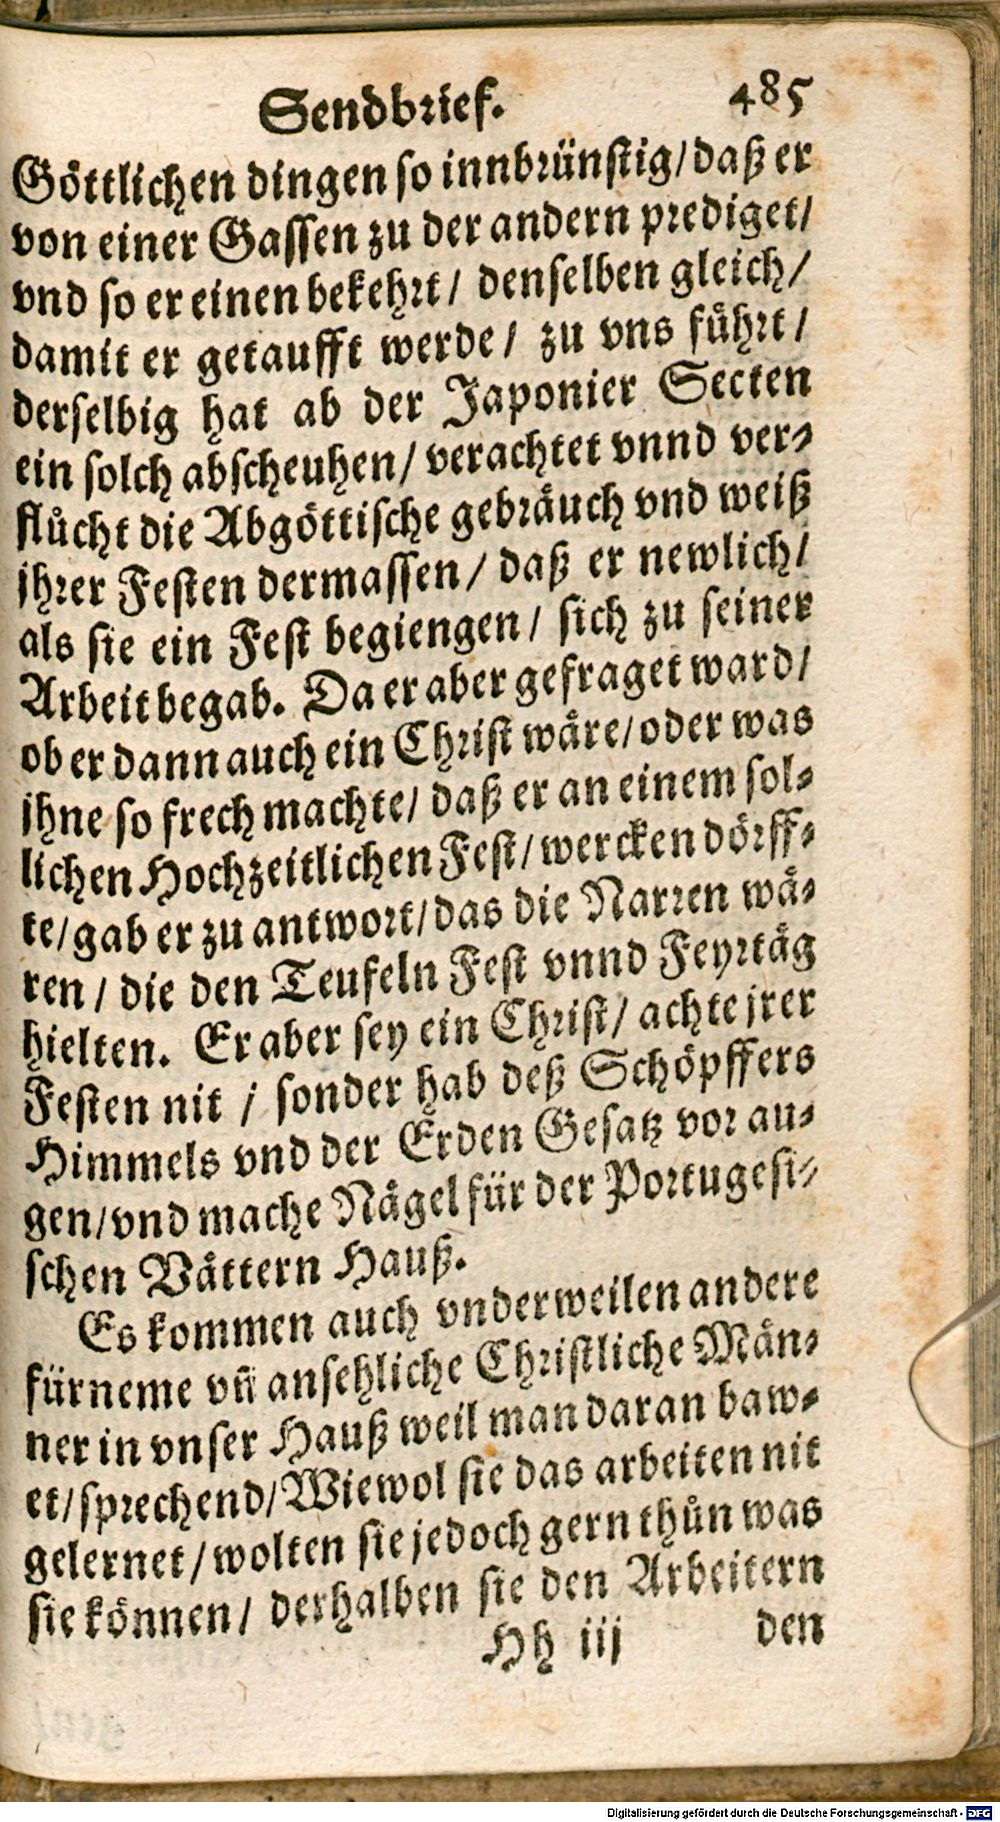 Sendbrief. 485
Göttlichen dingen so innbrünstig/ daß er
von einer Gassen zu der andern prediget/
vnd so er einen bekehrt/ denselben gleich/
damit er getaufft werde/ zu vns fůhrt/
derselbig hat ab der Japonier Secten
ein solch abscheuhen/ verachtet vnnd ver-
flůcht die Abgöttische gebräuch vnd weiß
jhrer Festen dermassen/ daß er newlich/
als sie ein Fest begiengen/ sich zu seiner
Arbeit begab. Da er aber gefraget ward/
ob er dann auch ein Christ wäre/ oder was
jhne so frech machte/ daß er an einem sol-
lichen Hochzeitlichen Fest/ wercken dörff-
te/ gab er zu antwort/ das die Narren wä-
ren/ die den Teufeln Fest vnnd Feyrtäg
hielten. Er aber sey ein Christ/ achte jrer
Festen nit / sonder hab deß Schöpffers
Himmels vnd der Erden Gesatz vor au-
gen/ vnd mache Nägel für der Portugesi-
schen Vättern Hauß.
Es kommen auch vnderweilen andere
fürneme vñ ansehliche Christliche Män-
ner in vnser Hauß weil man daran baw-
et/ sprechend/ Wiewol sie das arbeiten nit
gelernet/ wolten sie jedoch gern thůn was
sie können/ derhalben sie den Arbeitern
Hh iij den
Digitalisierung gefördert durch die Deutsche Forschungsgemeinschaft - DFG